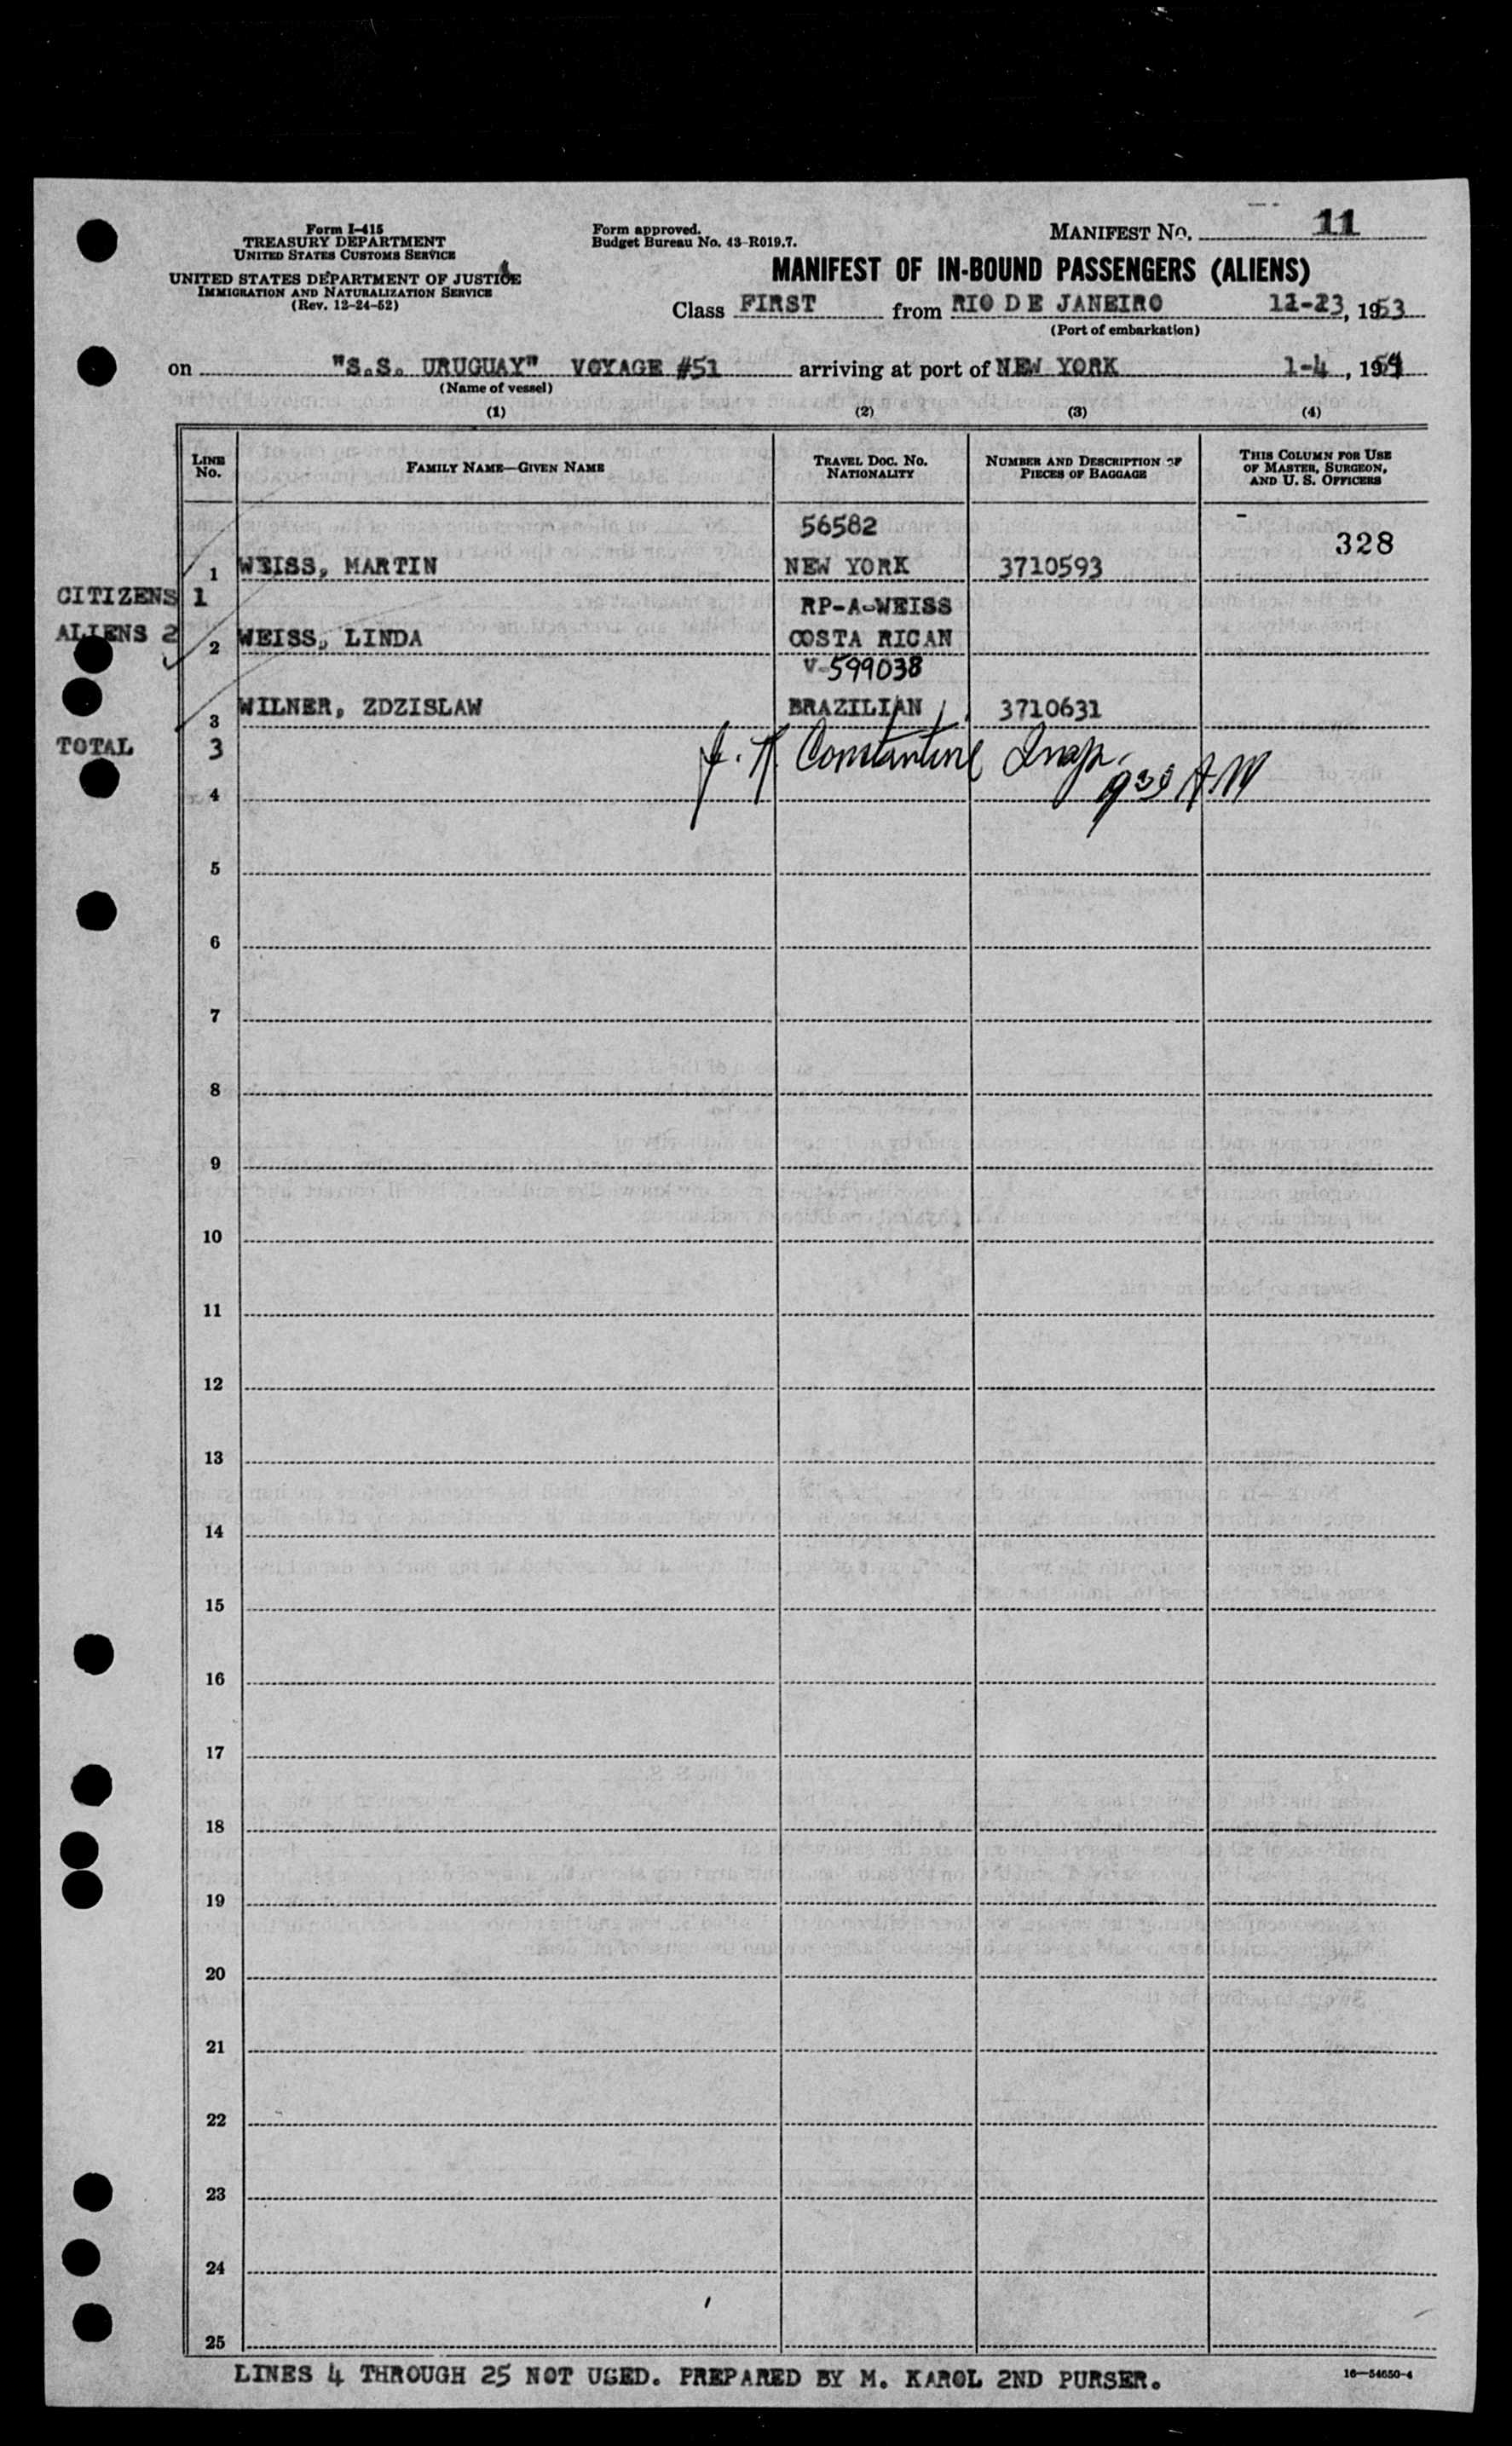 Form I-415
TREASURY DEPARTMENT
UNITED STATES CUSTOMS SERVICE
UNITED STATES DEPARTMENT OF JUSTICE
IMMIGRATION AND NATURALIZATION SERVICE
(Rev. 12-24-52)
Form approved.
Budget Bureau No. 43-R019.7.
MANIFEST No. 11
MANIFEST OF IN-BOUND PASSENGERS (ALIENS)
Class FIRST from RIO DE JANEIRO 12-23, 1953
(Port of embarkation)
on "S.S. URUGUAY" VOYAGE #51 arriving at port of NEW YORK 1-4, 1954
(Name of vessel)
(1) (2) (3) (4)
LINE No. FAMILY NAME—GIVEN NAME TRAVEL DOC. No. NATIONALITY NUMBER AND DESCRIPTION OF PIECES OF BAGGAGE THIS COLUMN FOR USE OF MASTER, SURGEON, AND U. S. OFFICERS
56582 328
1 WEISS, MARTIN NEW YORK 3710593
CITIZENS 1 RP-A-WEISS
ALIENS 2
2 WEISS, LINDA COSTA RICAN
V-599038
3 WILNER, ZDZISLAW BRAZILIAN 3710631
TOTAL 3 Constantine Insp.
930 AM
4
5
6
7
8
9
10
11
12
13
14
15
16
17
18
19
20
21
22
23
24
25
LINES 4 THROUGH 25 NOT USED. PREPARED BY M. KAROL 2ND PURSER.
16—54650-4